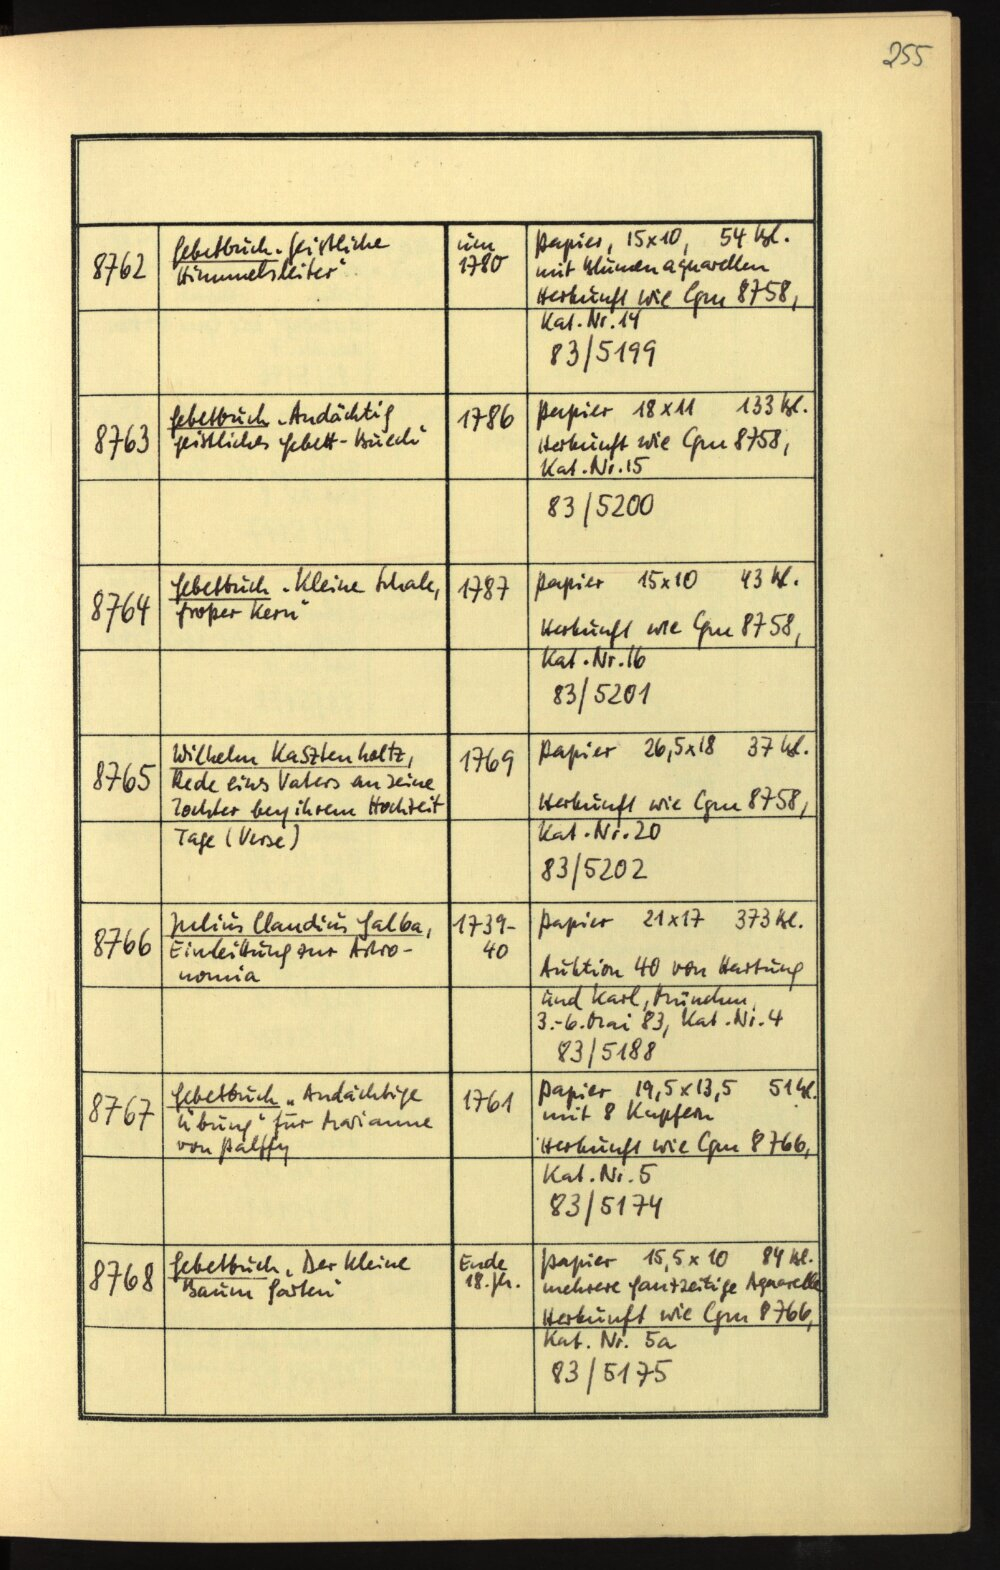 255
8762
Gebetbuch „Geistliche
Himmelsleiter“
um
1780
Papier, 15x10, 54 Bl.
mit Blumenaquarellen
Herkunft wie Cgm 8758,
Kat.Nr.14
83/5199
8763
Gebetbuch „Andächtig
geistliches Gebett-Buech“
1786
Papier 18x11 133 Bl.
Herkunft wie Cgm 8758,
Kat.Nr.15
83/5200
8764
Gebetbuch „Kleine Schale,
großer Kern“
1787
Papier 15x10 43 Bl.
Herkunft wie Cgm 8758,
Kat.Nr.16
83/5201
8765
Wilhelm Kasztenholtz,
Rede eines Vaters an seine
Tochter bey ihrem Hochzeit
Tage (Verse)
1769
Papier 26,5x18 37 Bl.
Herkunft wie Cgm 8758,
Kat.Nr.20
83/5202
8766
Julius Claudius Galba,
Einleitung zur Astro-
nomia
1739-
40
Papier 21x17 373 Bl.
Auktion 40 von Hartung
und Karl, München,
3.-6. Mai 83, Kat.Nr.4
83/5188
8767
Gebetbuch „Andächtige
Übung“ für Marianne
von Palffy
1761
Papier 19,5x13,5 51 Bl.
mit 8 Kupfern
Herkunft wie Cgm 8766,
Kat.Nr.5
83/5174
8768
Gebetbuch „Der kleine
Baum Garten“
Ende
18. Jh.
Papier 15,5x10 84 Bl.
mehrere ganzseitige Aquarelle
Herkunft wie Cgm 8766,
Kat. Nr. 5a
83/5175